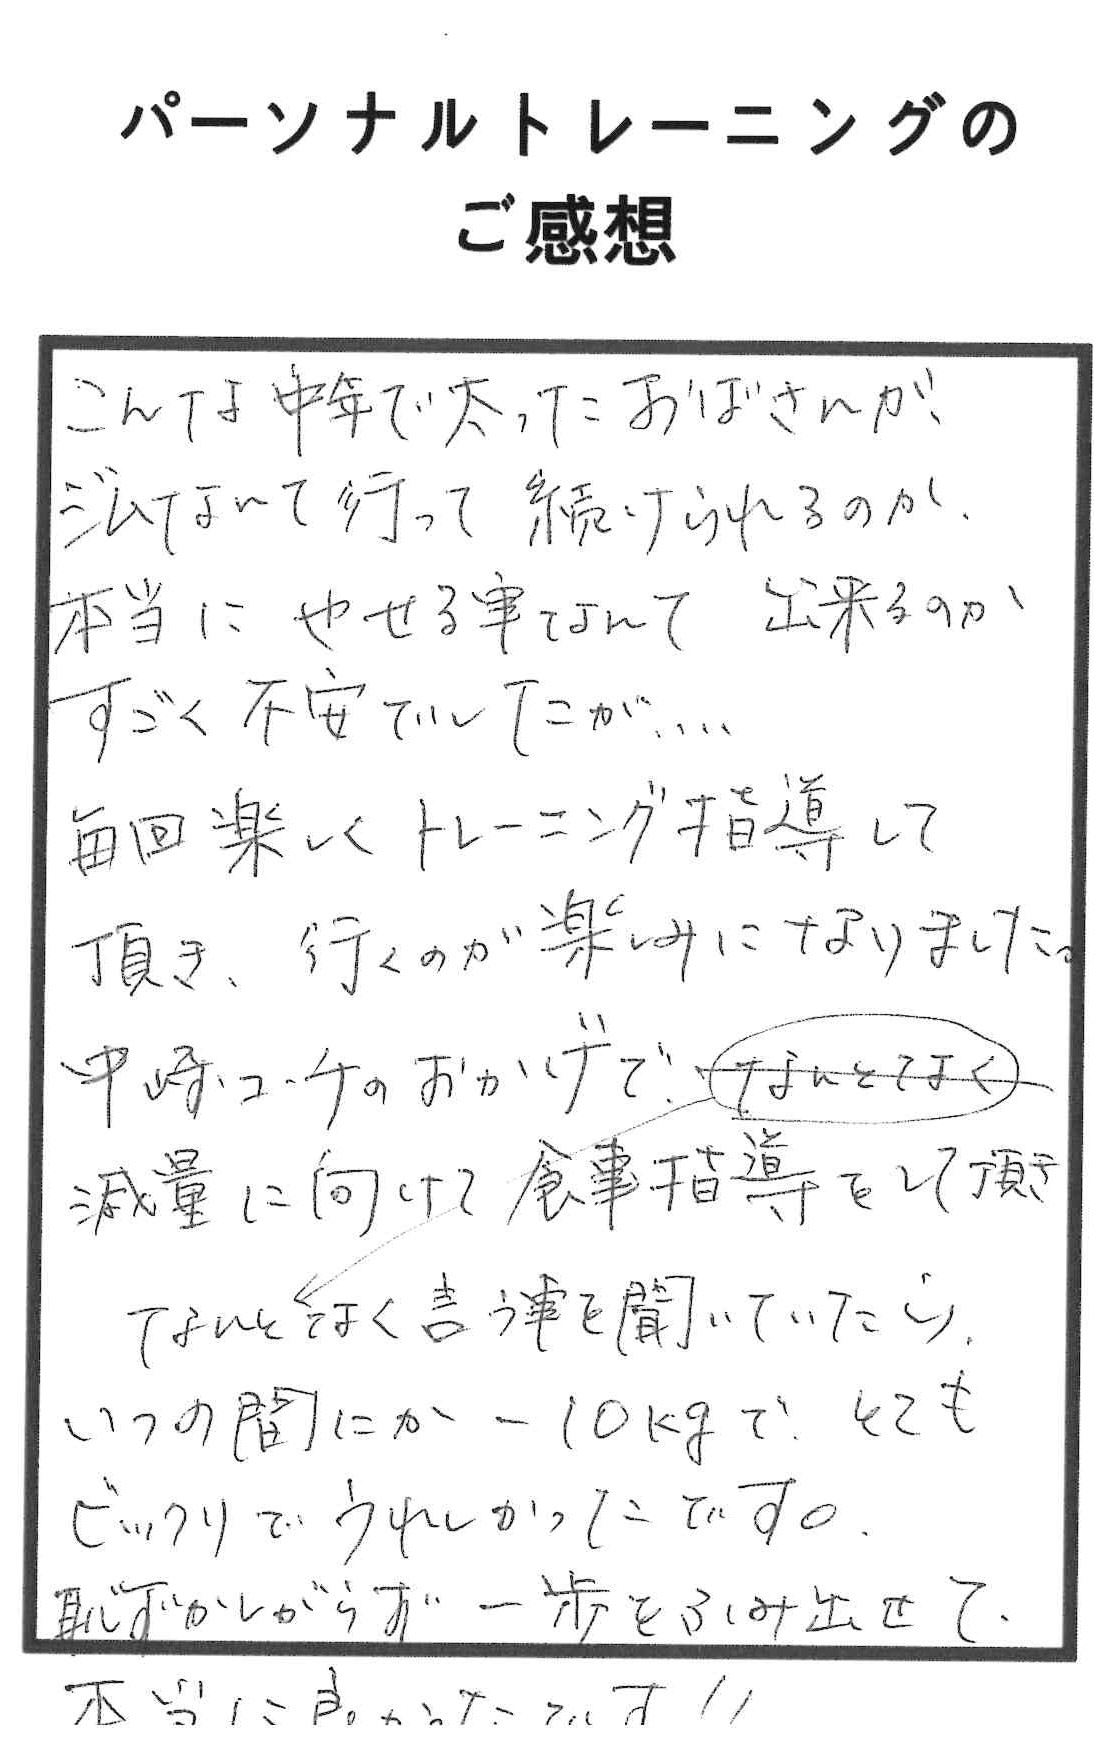 パーソナルトレーニングの
ご感想
こんな中年で太ったおばさんが、
ジムなんて行って続けられるのか、
本当にやせる事なんて出来るのか
すごく不安でしたが....
毎回楽しくトレーニング指導して
頂き、行くのが楽しみになりました。
中崎コーチのおかげで、なんとなく
減量に向けて食事指導をして頂き
なんとなく言う事を聞いていたら、
いつの間にか-10kgで、とても
ビックリでうれしかったです。
恥ずかしがらず一歩をふみ出せて、
本当に良かったです!!